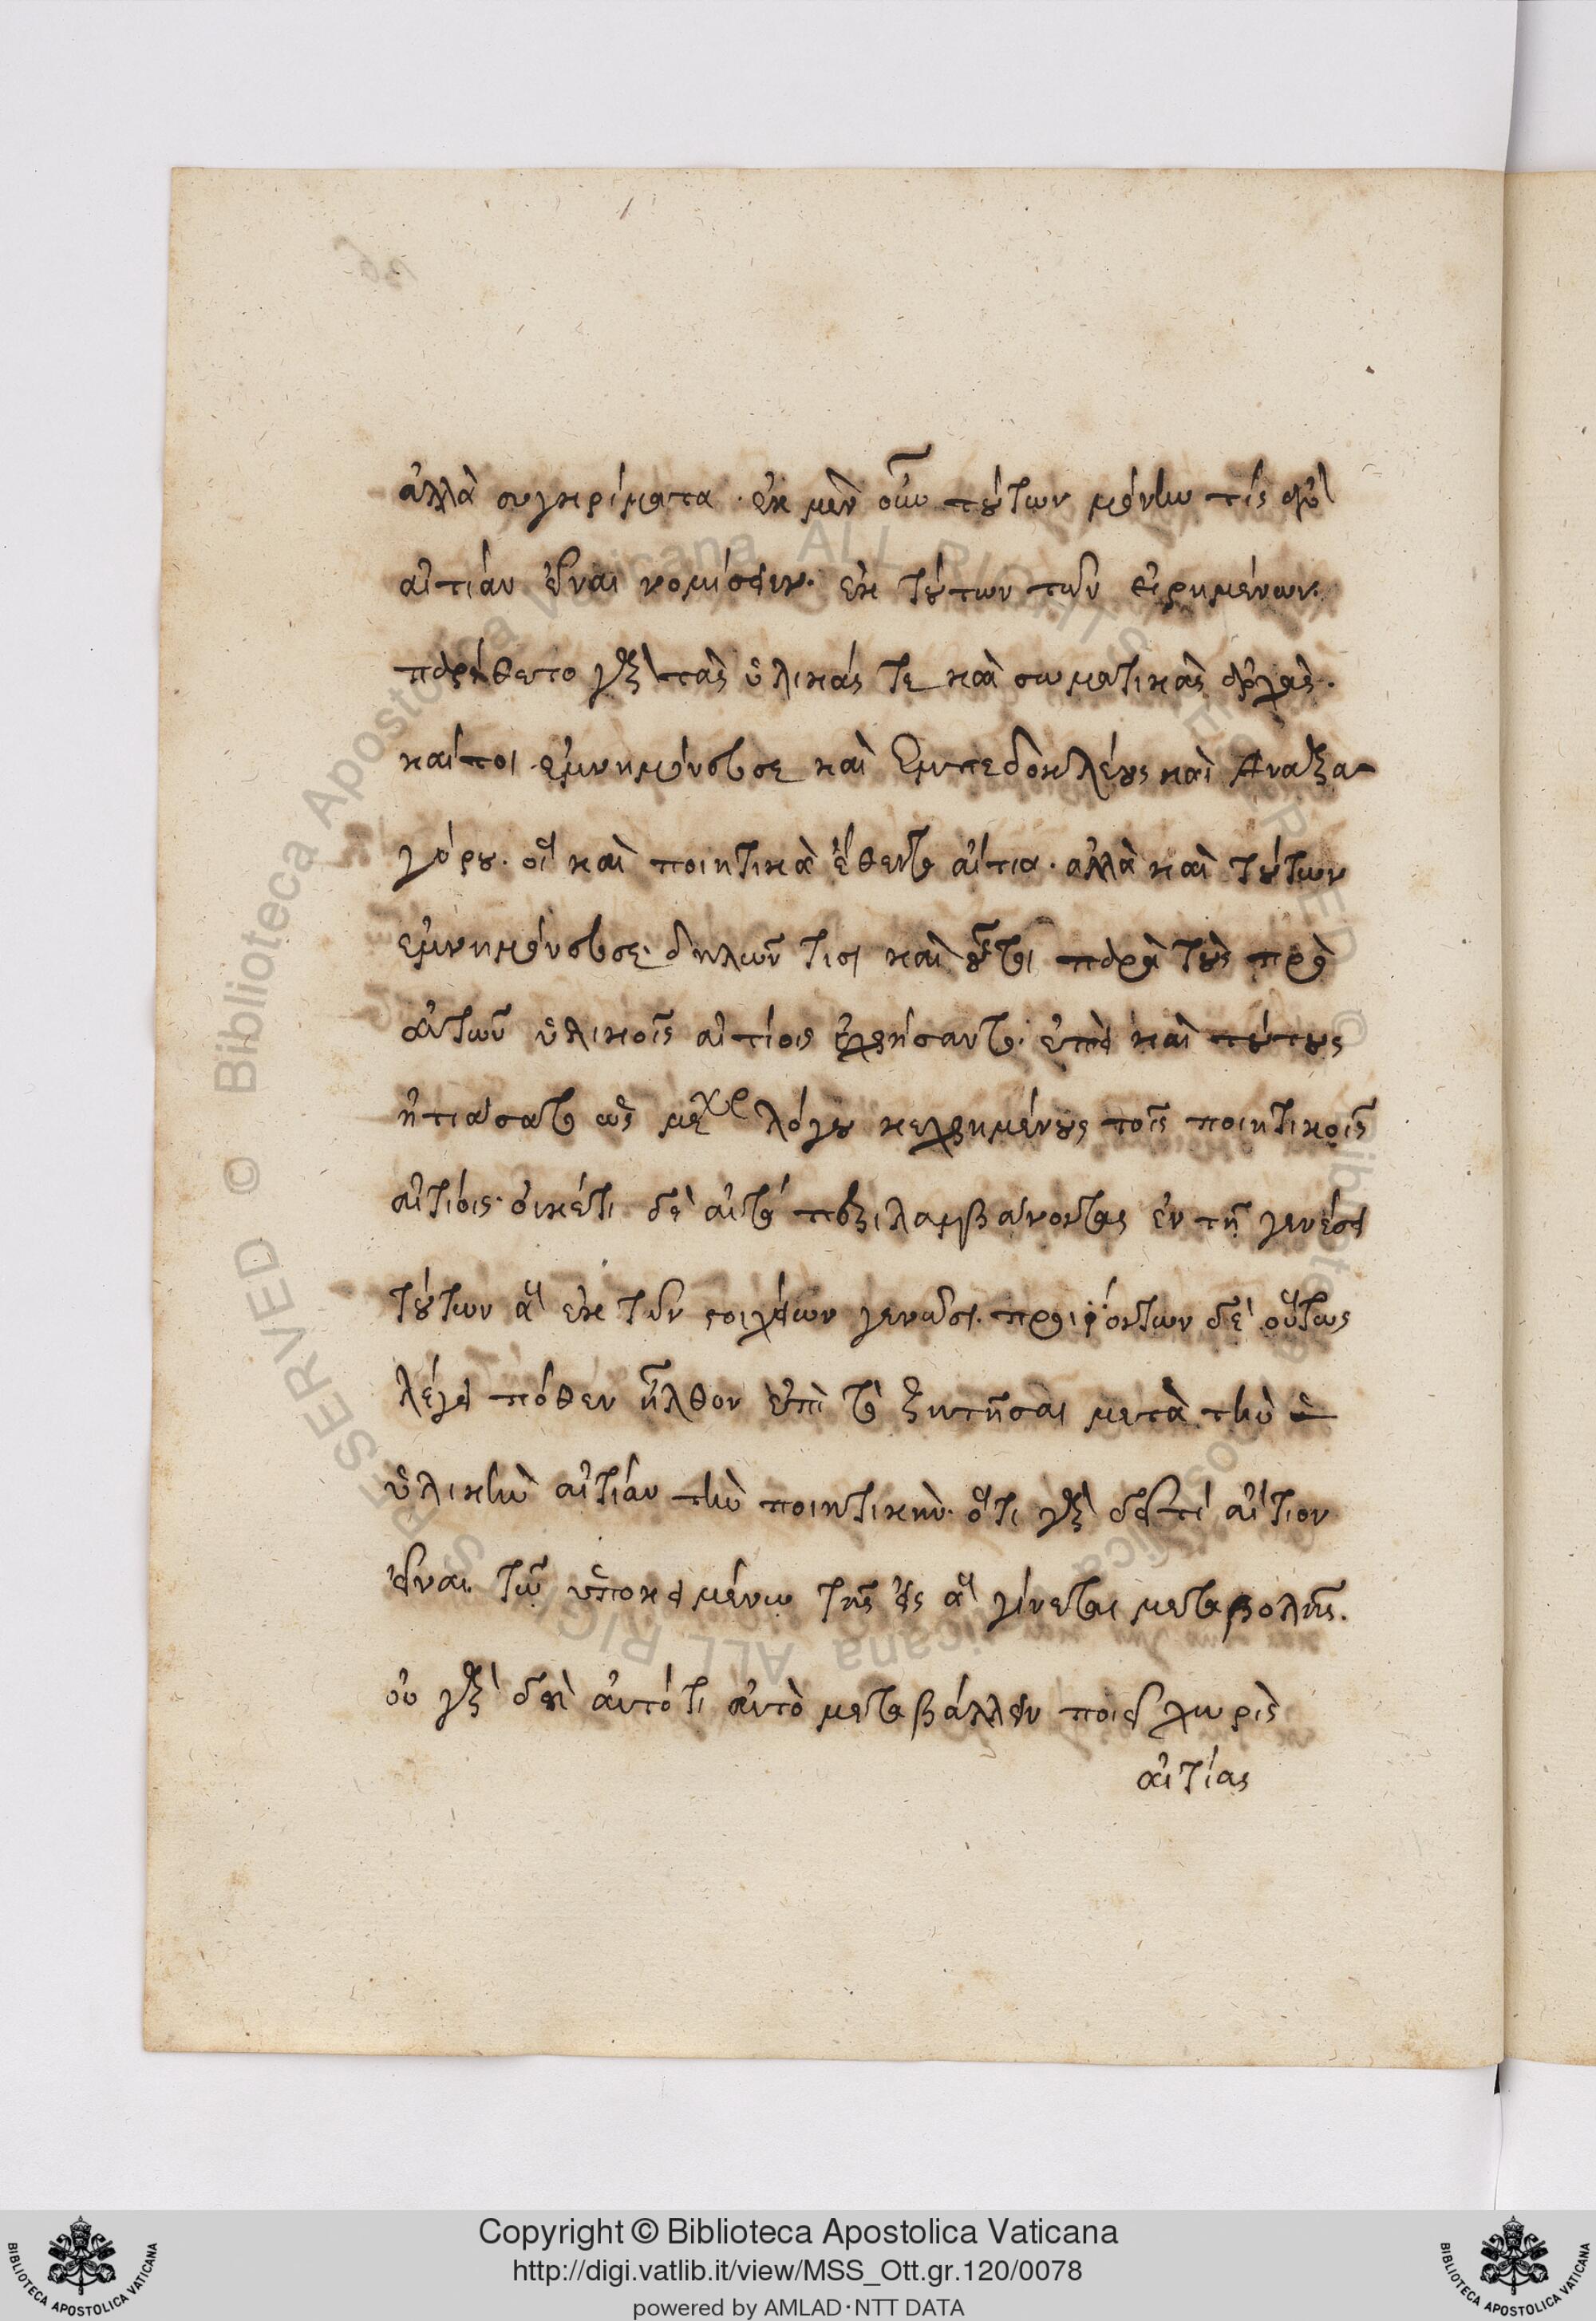 ἀλλὰ συγκρίματα. ἐκ μὲν οὖν τούτων μόνην τίς ἂν
αἰτίαν εἶναι νομίσειεν. ἐκ τούτων τῶν εἰρημένων.
παρέθετο γὰρ τὰς ὑλικάς τε καὶ σωματικὰς ἀρχὰς.
καίτοι ἐμνημόνευσε καὶ Ἐμπεδοκλέους καὶ Ἀναξα
γόρου. οἳ καὶ ποιητικὰ ἔθεντο αἴτια. ἀλλὰ καὶ τούτων
ἐμνημόνευσε. δηλῶν τίσι καὶ οὗτοι παρὰ τοὺς πρὸ
αὐτῶν ὑλικοῖς αἰτίοις ἐχρήσαντο. ἐπεὶ καὶ τούτους
ἠτιάσατο ὡς μέχρι λόγου κεχρημένους τοῖς ποιητικοῖς
αἰτίοις. οὐκέτι δὲ αὐτὰ παραλαμβάνοντας ἐν τῇ γενέσει
τούτων ἃ ἐκ τῶν στοιχείων γεννῶσι. προϊόντων δὲ οὕτως
λέγει πόθεν ἦλθον ἐπὶ τὸ ζητῆσαι μετὰ τὴν
ὑλικὴν αἰτίαν τὴν ποιητικήν. ὅτι γὰρ δεῖ τι αἴτιον
εἶναι τῷ ὑποκειμένῳ τῆς εἰς ἃ γίνεται μεταβολῆς.
οὐ γὰρ δὴ αὐτό τι αὑτὸ μεταβάλλειν ποιεῖ χωρὶς
αἰτίας
Copyright © Biblioteca Apostolica Vaticana
http://digi.vatlib.it/view/MSS_Ott.gr.120/0078
powered by AMLAD · NTT DATA